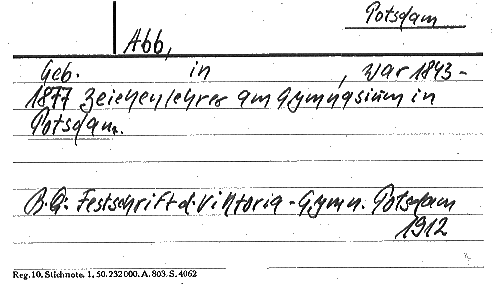 Potsdam
Abb,
Geb. in , war 1843-
1877 Zeichenlehrer am Gymnasium in
Potsdam.
B.G: Festschrift d. Viktoria-Gymn. Potsdam
1912
Reg. 10. Stichnote. 1, 50. 232000. A. 803. S. 4062